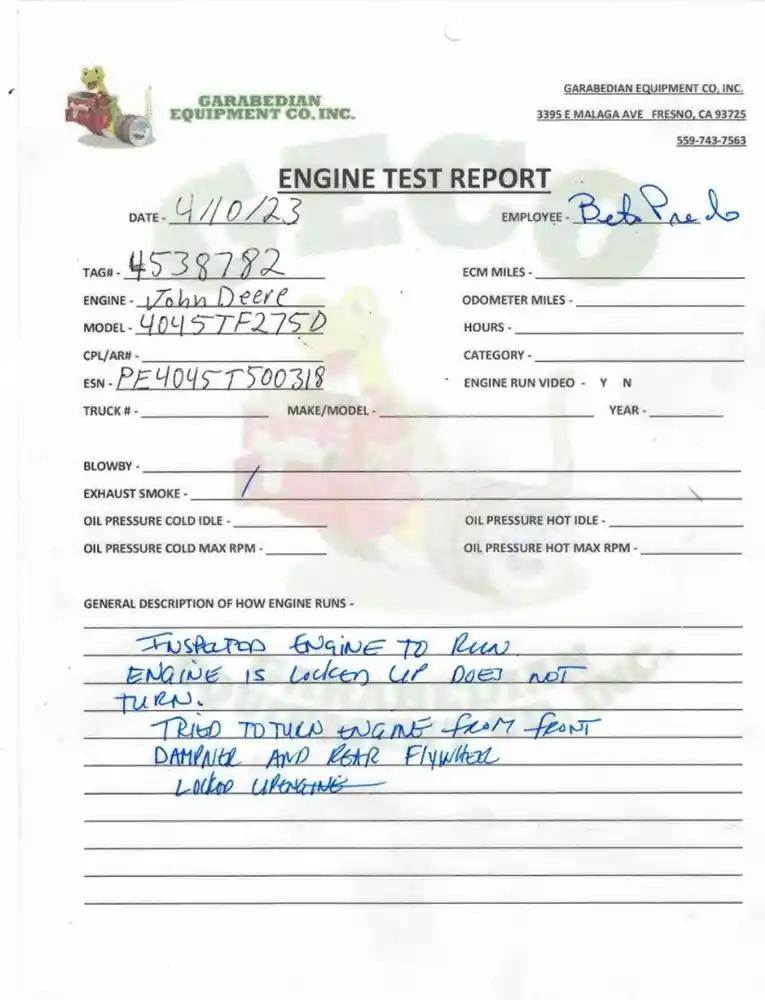 GARABEDIAN
EQUIPMENT CO. INC.
GARABEDIAN EQUIPMENT CO, INC.
3395 E MALAGA AVE FRESNO, CA 93725
559-743-7563
ENGINE TEST REPORT
DATE - 4/10/23
EMPLOYEE -
TAG# - 4538782
ECM MILES -
ENGINE - John Deere
ODOMETER MILES -
MODEL - 4045TF275D
HOURS -
CPL/AR# -
CATEGORY -
ESN - PE4045T500318
ENGINE RUN VIDEO - Y N
TRUCK # - MAKE/MODEL - YEAR -
BLOWBY -
EXHAUST SMOKE -
OIL PRESSURE COLD IDLE - OIL PRESSURE HOT IDLE -
OIL PRESSURE COLD MAX RPM - OIL PRESSURE HOT MAX RPM -
GENERAL DESCRIPTION OF HOW ENGINE RUNS -
INSPECTED ENGINE TO RUN
ENGINE IS LOCKED UP DOES NOT
TURN.
TRIED TO TURN ENGINE FROM FRONT
DAMPNER AND REAR FLYWHEEL
LOCKED UP ENGINE
GECO